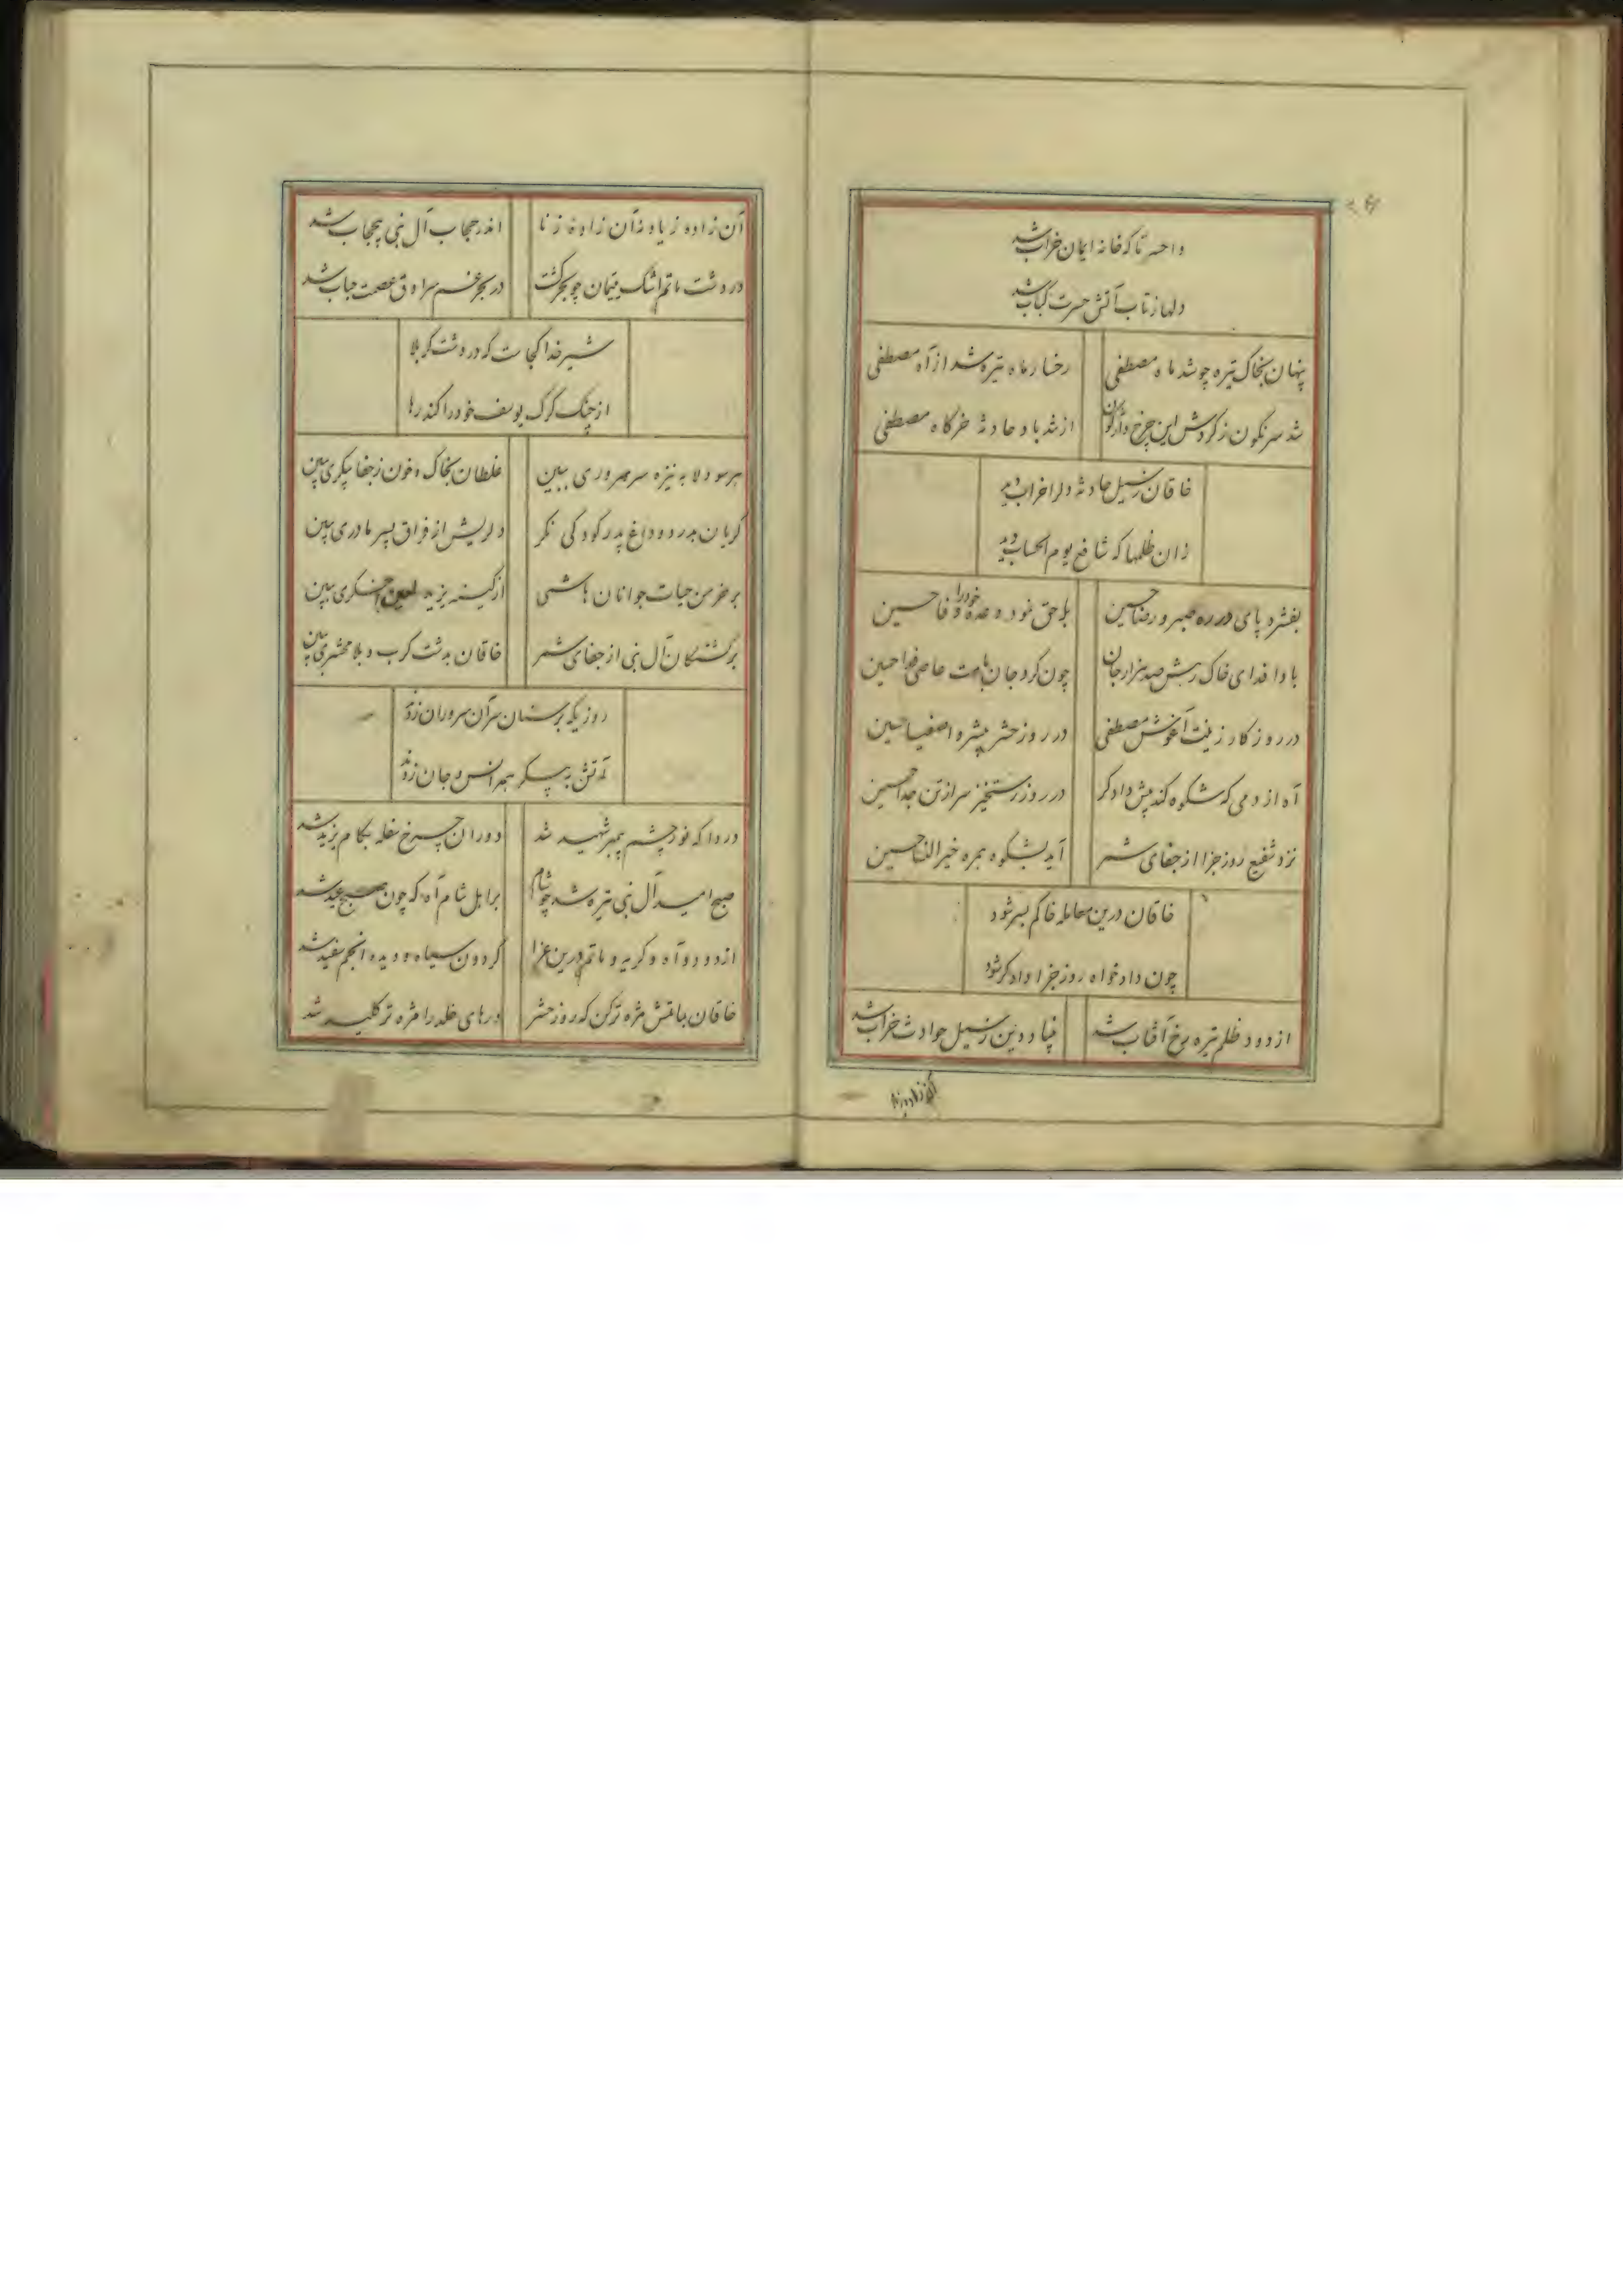 واحسرتا که خانه ایمان خراب شد
دلها ز تاب آتش حسرت کباب شد
پنهان بخاک تیره چو شد ماه مصطفی رخسار ماه تیره شد از آه مصطفی
شد سرنگون ز کردش این چرخ واژگون از تندباد حادثه خرگاه مصطفی
خاقان ز سیل حادثه دلرا خراب دید
زان ظلمها که شافع یوم الحساب دید
بفشرد پای در ره صبر و رضا حسین با حق نمود وعده خود را وفا حسین
بادا فدای خاک رهش صد هزار جان چون کرد جان بامت عاصی فدا حسین
در روزکار زینت آغوش مصطفی در روز حشر پیشرو اصفیا حسین
آه از دمی که شکوه کند پیش دادکر در روز رستخیز سر از تن جدا حسین
نزد شفیع روز جزا از جفای شمر آید بشکوه همره خیر النسا حسین
خاقان درین معامله خاکم بسر شود
چون دادخواه روز جزا دادکر شود
از دود ظلم تیره رخ آفتاب شد بنیاد دین ز سیل حوادث خراب شد
آن زاده زیاد
آن زاده زیاد آن زاده زنا اندر حجاب آل نبی بیحجاب شد
در دشت ماتم اشک یتیمان چو بحر کشت در بحر غم سرادق عصمت حباب شد
شیر خدا کجاست که در دشت کربلا
از چنک کرک یوسف خود را کند رها
هر سو دلا به نیزه سر سروری ببین غلطان بخاک و خون ز جفا پیکری ببین
کریان بدرد و داغ پدر کودکی نکر دلریش از فراق پسر مادری ببین
بر خرمن حیات جوانان هاشمی از کینه یزید لعین اخکری ببین
بر کشتکان آل نبی از جفای شمر خاقان بدشت کرب و بلا محشری ببین
روزیکه بر سنان سر آن سروران زدند
آتش به پیکر همه انس و جان زدند
دردا که نور چشم پیمبر شهید شد دوران چرخ سفله بکام یزید شد
صبح امید آل نبی تیره شد چو شام بر اهل شام آه که چون صبح عید شد
از دود و آه و کریه و ماتم درین عزا کردون سیاه و دیده انجم سفید شد
خاقان بماتمش مژه تر کن که روز حشر درهای خلد را مژه تر کلید شد